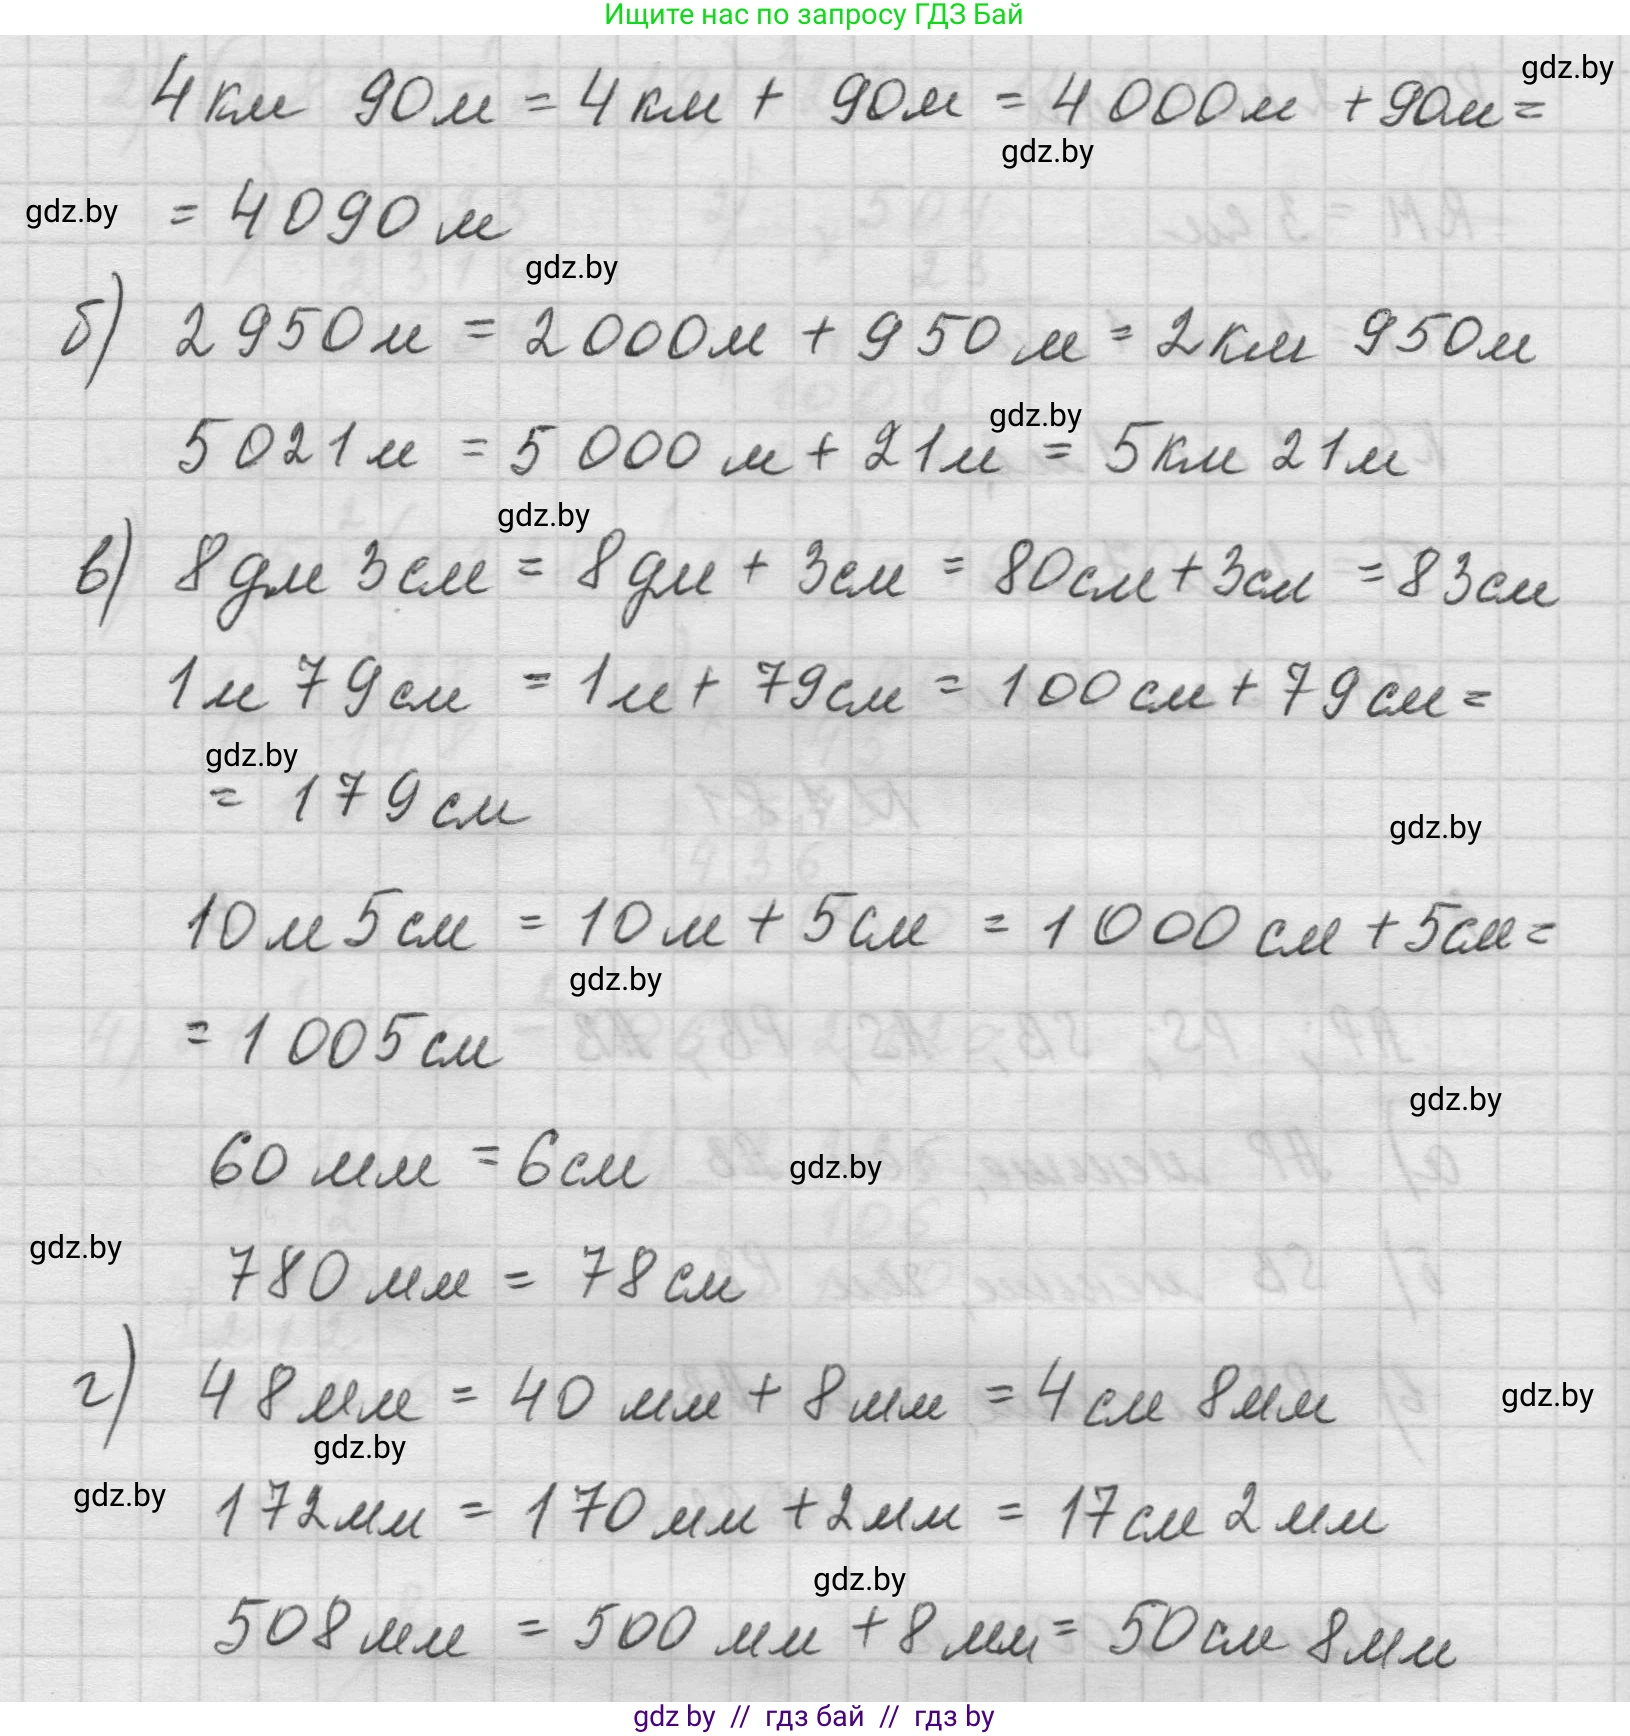 Ищите нас по запросу ГДЗ Бай
gdz.by
4 км 90 м = 4 км + 90 м = 4 000 м + 90 м =
gdz.by
gdz.by
= 4 090 м
gdz.by
б) 2 950 м = 2 000 м + 950 м = 2 км 950 м
gdz.by
5 021 м = 5 000 м + 21 м = 5 км 21 м
gdz.by
в) 8 дм 3 см = 8 дм + 3 см = 80 см + 3 см = 83 см
1 м 79 см = 1 м + 79 см = 100 см + 79 см =
gdz.by
= 179 см
gdz.by
10 м 5 см = 10 м + 5 см = 1 000 см + 5 см =
gdz.by
= 1 005 см
gdz.by
60 мм = 6 см
gdz.by
gdz.by
780 мм = 78 см
г) 48 мм = 40 мм + 8 мм = 4 см 8 мм
gdz.by
gdz.by
gdz.by
172 мм = 170 мм + 2 мм = 17 см 2 мм
gdz.by
508 мм = 500 мм + 8 мм = 50 см 8 мм
gdz by // гдз бай // гдз by